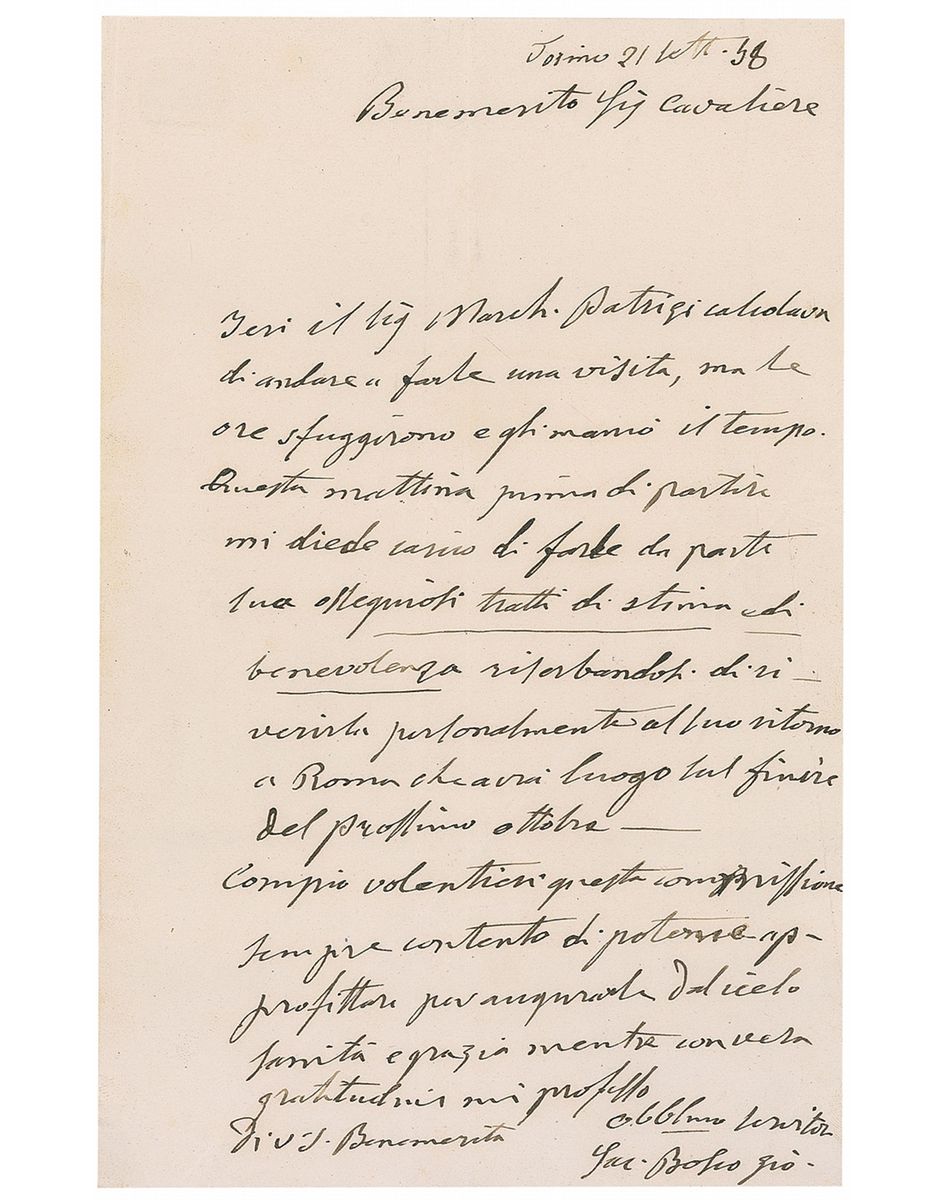 Torino 21 Sett. 58
Benemerito Sig Cavaliere
Ieri il Sig March. Patrizi calcolava
di andare a farle una visita, ma le
ore sfuggirono e gli mancò il tempo.
Questa mattina prima di partire
mi diede carico di farle da parte
sua ossequiosi tratti di stima e di
benevolenza riserbandosi di ri-
verirla personalmente al suo ritorno
a Roma che avrà luogo sul finire
del prossimo ottobre —
Compio volentieri questa commissione
sempre contento di poterne ap-
profittare per augurarle dal cielo
sanità e grazia mentre con vera
gratitudine mi professo
Di V. S. Benemerita
obblmo servitor
Sac. Bosco Gio.